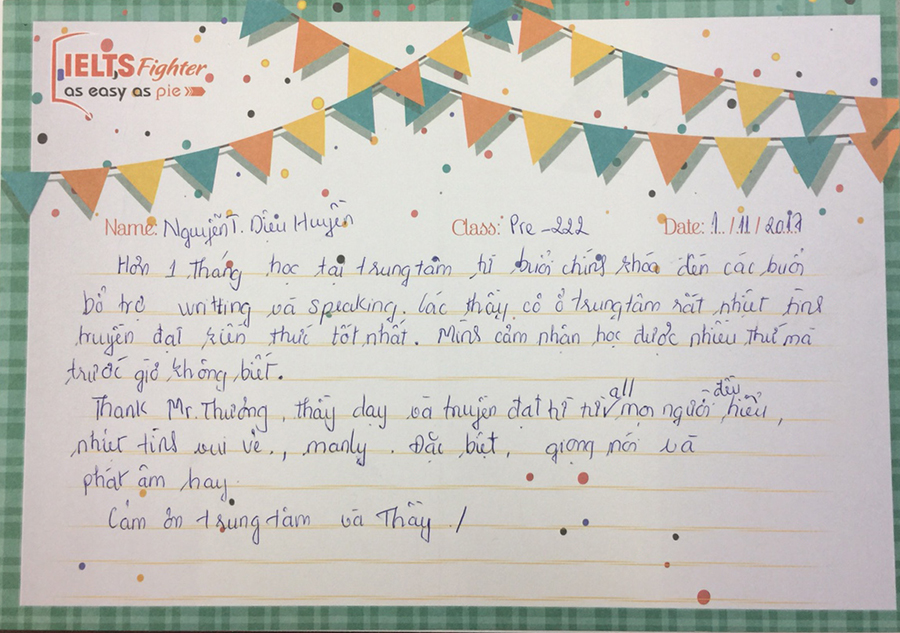 IELTS Fighter
as easy as pie
Name: Nguyễn T. Diệu Huyền Class: Pre-222 Date: 1../11/2017
Hơn 1 tháng học tại trung tâm từ buổi chính khóa đến các buổi
bổ trợ writting và speaking. Các thầy cô ở trung tâm rất nhiệt tình
truyền đạt kiến thức tốt nhất. Mình cảm nhận học được nhiều thứ mà
trước giờ không biết.
Thank Mr. Thưởng, thầy dạy và truyền đạt all mọi người đều hiểu,
nhiệt tình vui vẻ., manly. Đặc biệt, giọng nói và
phát âm hay.
Cảm ơn trung tâm và Thầy ./